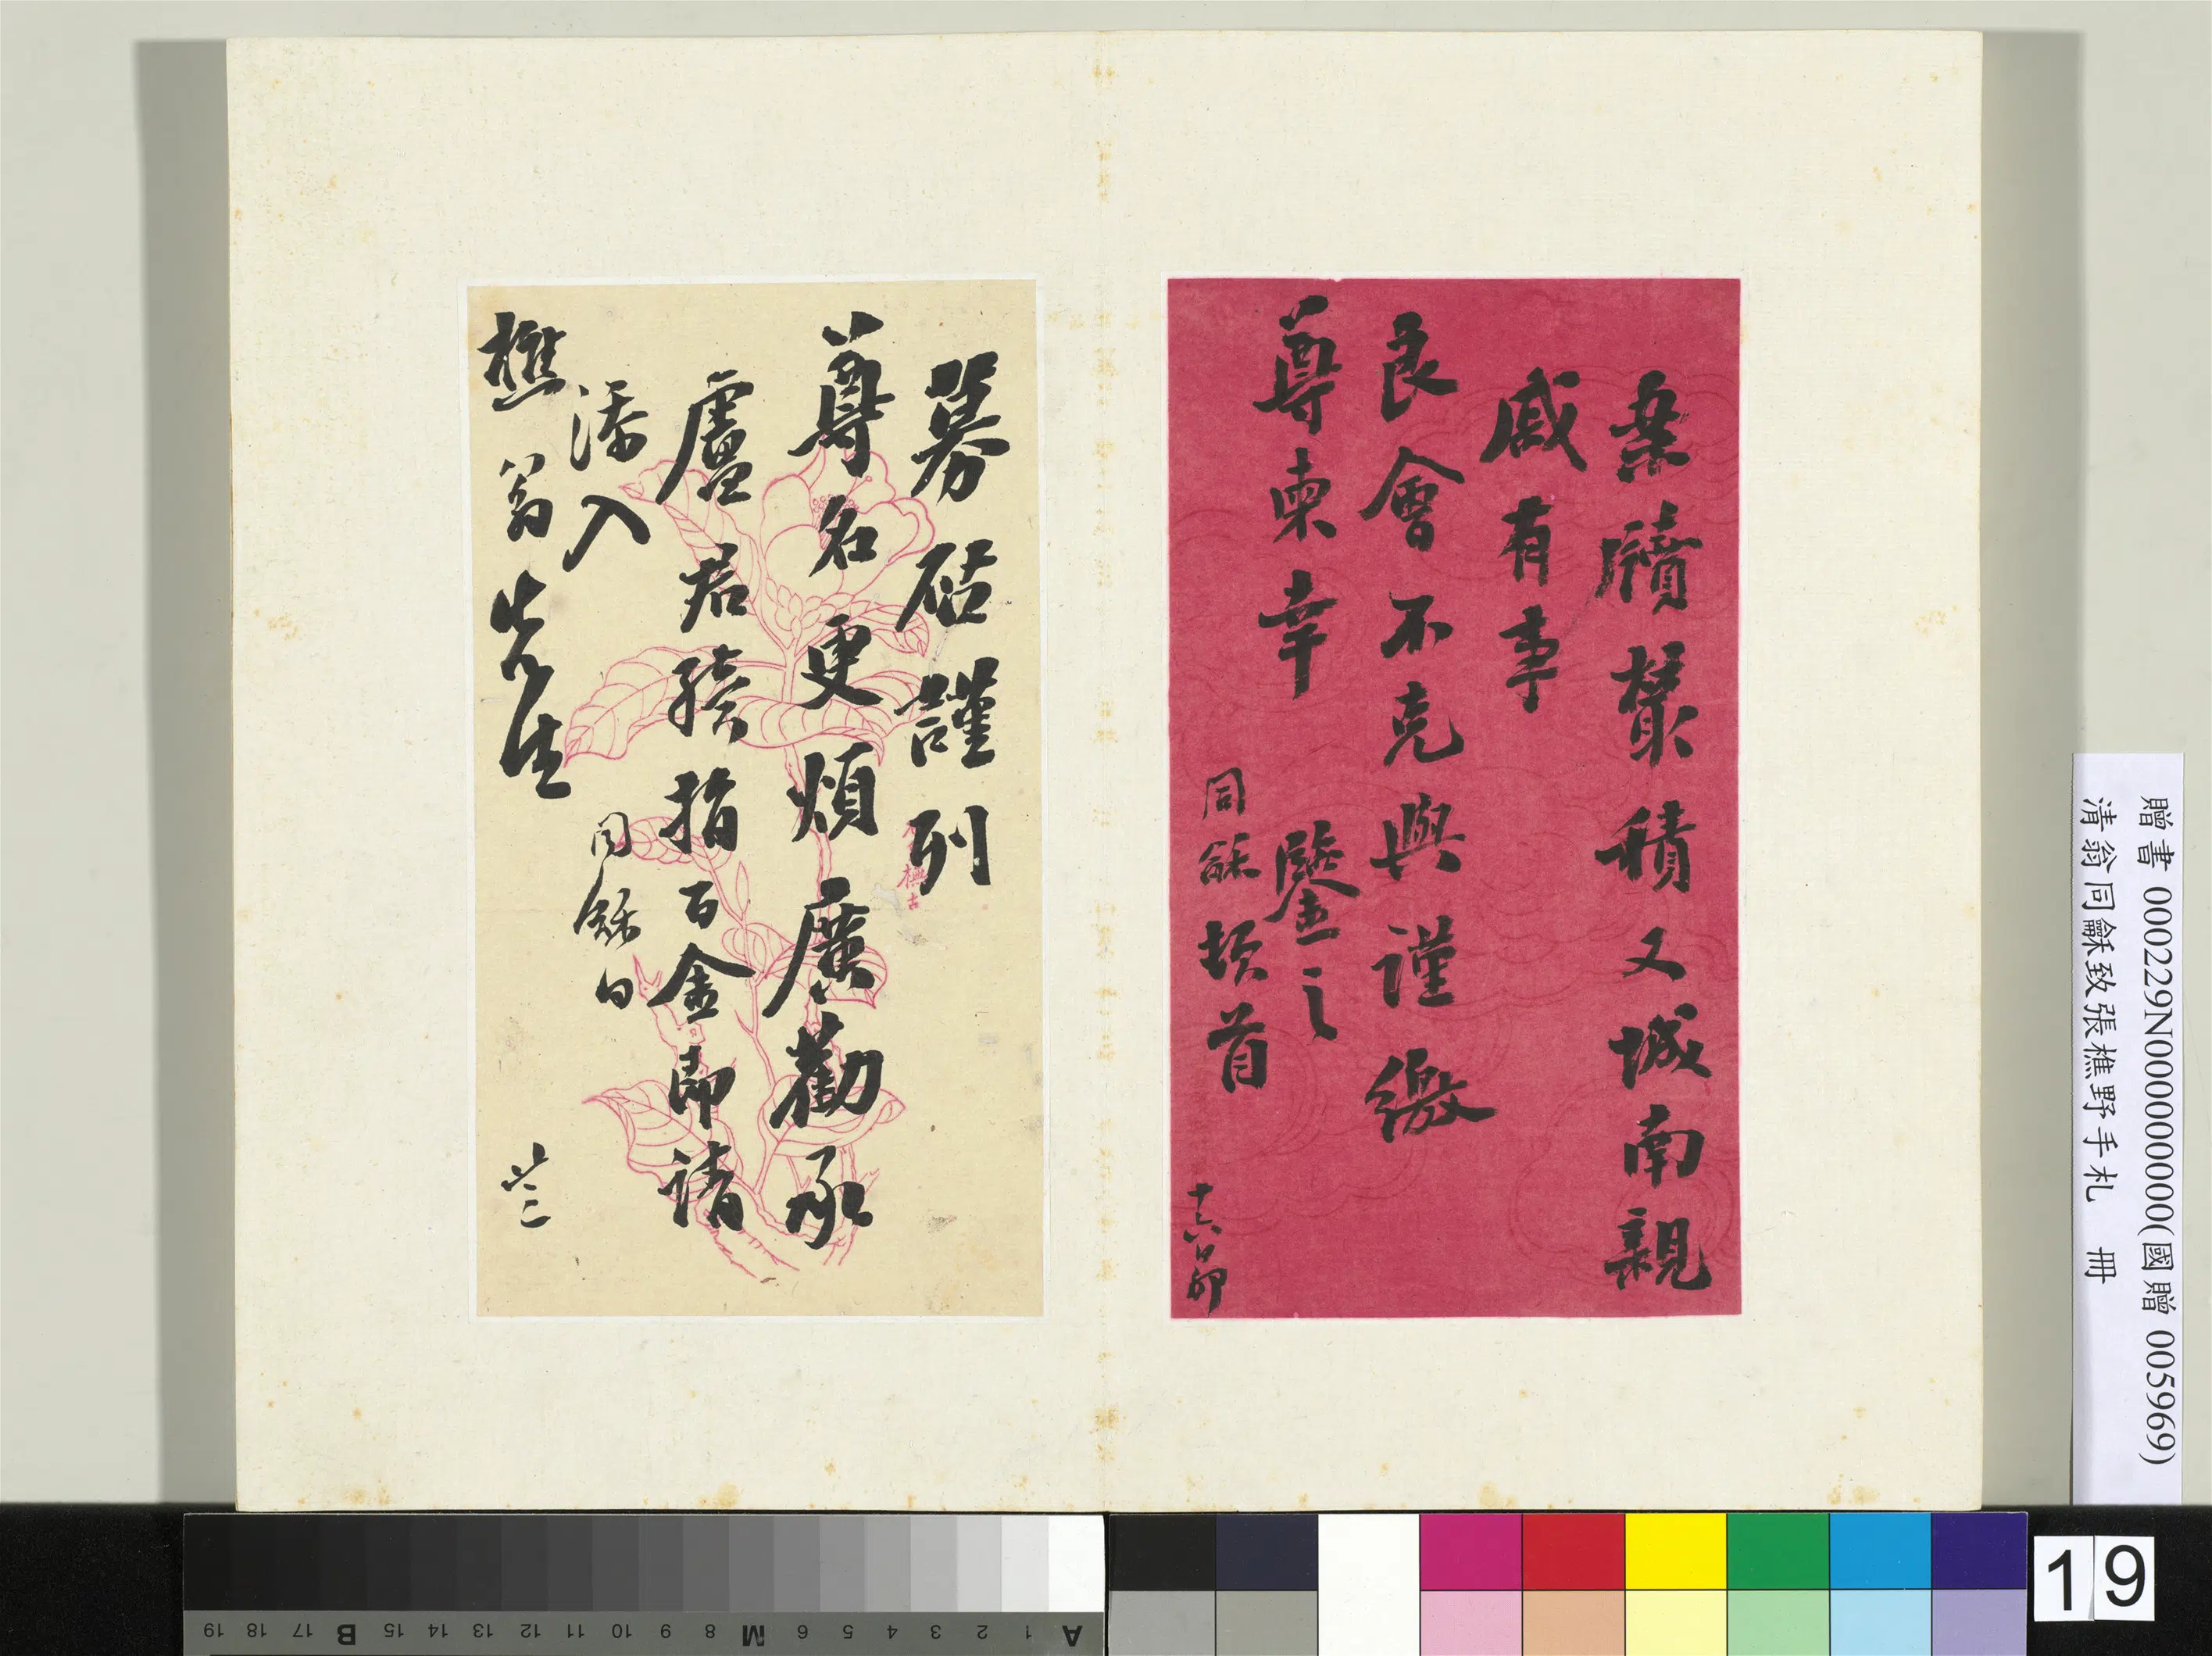 案牘叢積又城南親
戚有事
良會不克與謹繳
尊柬幸
鑒之
同龢頓首
十六日卯
募啟謹列
尊名更煩廣勸承
盧君猗指百金即請
添入
樵翁先生
同龢白
廿二
贈書 000229N000000000(國贈 005969)
清翁同龢致張樵野手札 冊
A 1 2 3 4 5 6 M 8 9 10 11 12 13 14 15 B 17 18 19
19